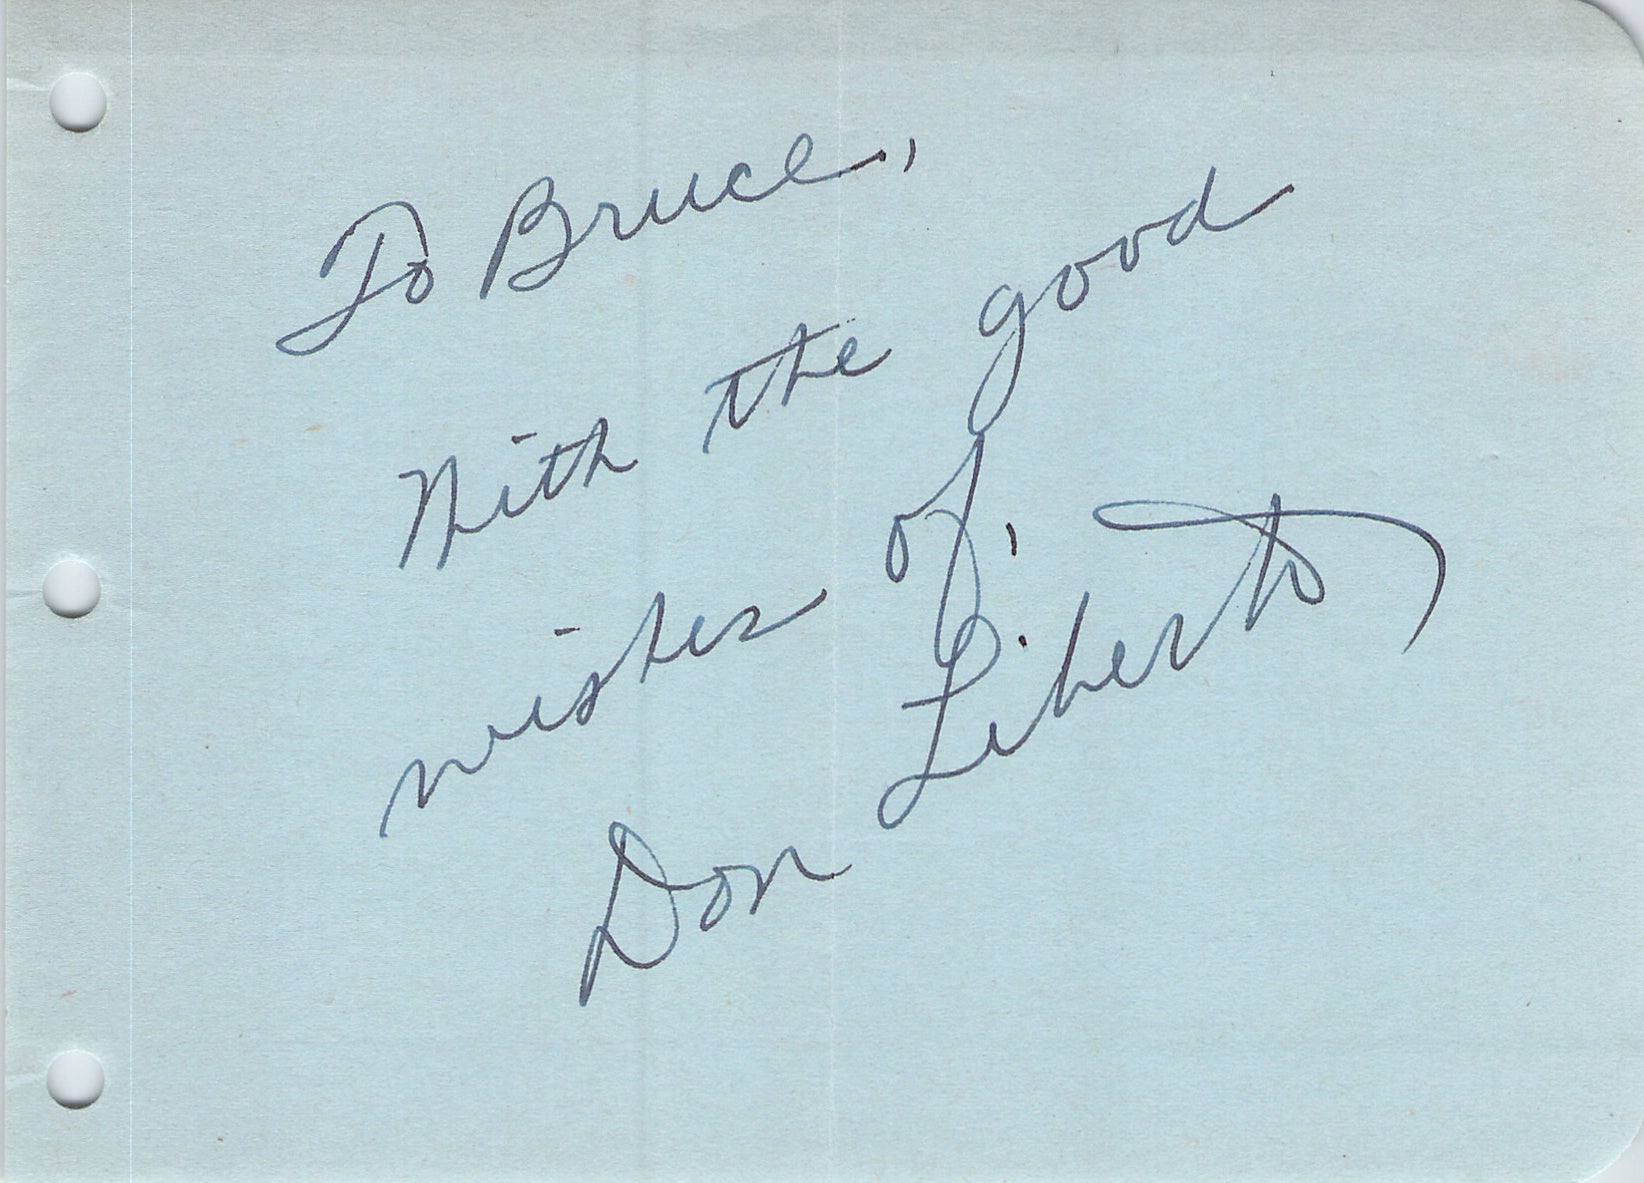 To Bruce,
With the good
wishes of,
Don Liberto